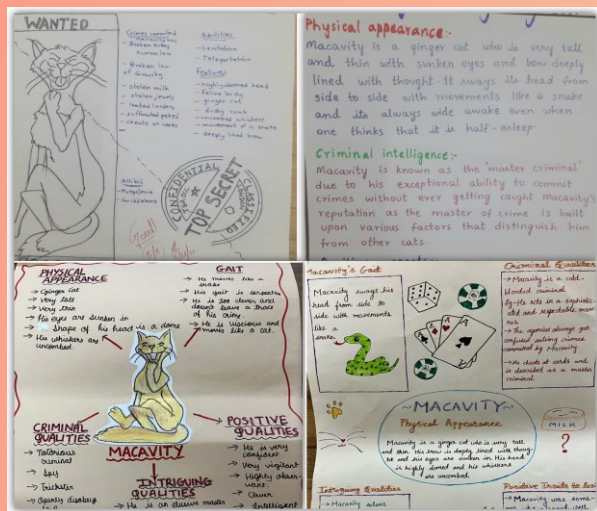 WANTED
Crimes committed
- Broken every human law
- Broken law of Gravity
- stolen milk
- stolen jewels
- looted larders
- suffocated pekes
- cheats at cards
Abilities
- Levitation
- Teleportation
Features
- highly domed head
- feline body
- ginger cat
- dusty coat
- uncombed whiskers
- movement of a snake
- deeply lined brow
Allibi
CONFIDENTIAL
TOP SECRET
CLASSIFIED
Good!
Physical appearance:-
Macavity is a ginger cat who is very tall
and thin with sunken eyes and bow deeply
lined with thought. It sways its head from
side to side with movements like a snake
and its always wide awake even when
one thinks that it is half-asleep.
Criminal intelligence:-
Macavity is known as the 'master criminal'
due to his exceptional ability to commit
crimes without ever getting caught Macavity's
reputation as the master of crime is built
upon various factors that distinguish him
from other cats.
PHYSICAL
APPEARANCE
→ Ginger Cat
→ Very tall
→ Very thin
→ His eyes are sunken in
→ shape of his head is a dome
→ His whiskers are
uncombed.
GAIT
→ He moves like a
snake
→ His gait is
→ He is too clever and
doesn't leave a trace
of his crime.
→ He is vivacious and
moves like a cat.
CRIMINAL
QUALITIES
→ Notorious
criminal
→ Spy
→ Trickster
→ Openly disobey
MACAVITY
INTRIGUING
QUALITIES
→ He is an elusive master
POSITIVE
QUALITIES
→ He is very
confident
→ Very vigilant
→ Highly obser-
vant.
→ Clever
→ Intelligent
Macavity's Gait
Macavity sways his
head from side to
side with movements
like a
snake.
Criminal Qualities
→ Macavity is a cold-
blooded criminal.
He acts in a sophistic-
ated and respectable man-
ner.
→ The agencies always get
confused solving crimes
committed by Macavity.
→ He cheats at cards and
is described as a master
criminal.
~MACAVITY~
Physical Appearance
Macavity is a ginger cat who is very tall
and thin. His brow is deeply lined with thoug-
ht and his eyes are sunken in. His head
is highly domed and his whiskers
are uncombed.
MILK
?
Intriguing Qualities
→ Macavity
Positive Traits to
→ Macavity was some-